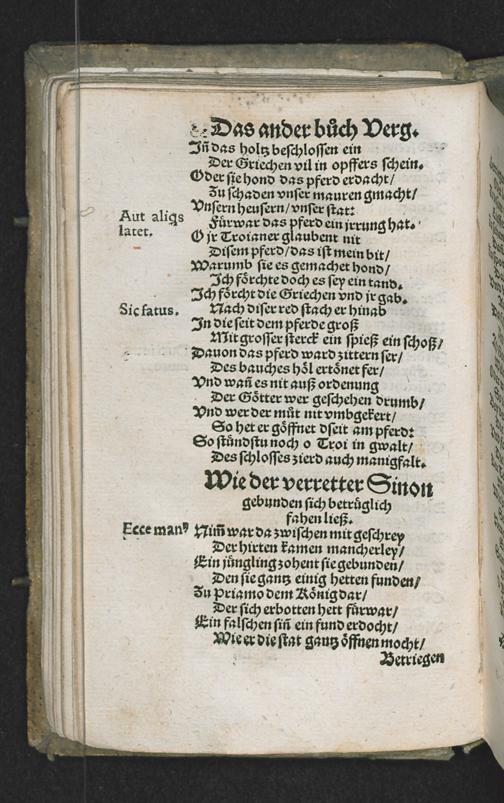 Das ander bůch Verg.
Jñ das holtz beschlossen ein
Der Griechen vil in opffers schein.
Oder sie hond das pferd erdacht/
Zu schaden vnser mauren gmacht/
Vnsern heusern/ vnser stat:
Aut aliqs
latet.
Fürwar das pferd ein jrrung hat.
O jr Troianer glaubent nit
Disem pferd/ das ist mein bit/
Warumb sie es gemachet hond/
Jch förchte doch es sey ein tand.
Jch förcht die Griechen vnd jr gab.
Sic fatus.
Nach diser red stach er hinab
Jn die seit dem pferde groß
Mit grosser sterck ein spieß ein schoß/
Dauon das pferd ward zittern ser/
Des bauches höl ertönet fer/
Vnd wañ es nit auß ordenung
Der Götter wer geschehen drumb/
Vnd wer der můt nit vmbgekert/
So het er göffnet dseit am pferd:
So stůndstu noch o Troi in gwalt/
Des schlosses zierd auch manigfalt.
Wie der verretter Sinon
gebunden sich betrüglich
fahen ließ.
Ecce manꝰ
Nim̃ war da zwischen mit geschrey
Der hirten kamen mancherley/
Ein jüngling zohent sie gebunden/
Den sie gantz einig hetten funden/
Zu Priamo dem König dar/
Der sich erbotten hett fürwar/
Ein falschen siñ ein fund erdocht/
Wie er die stat gantz öffnen mocht/
Betriegen